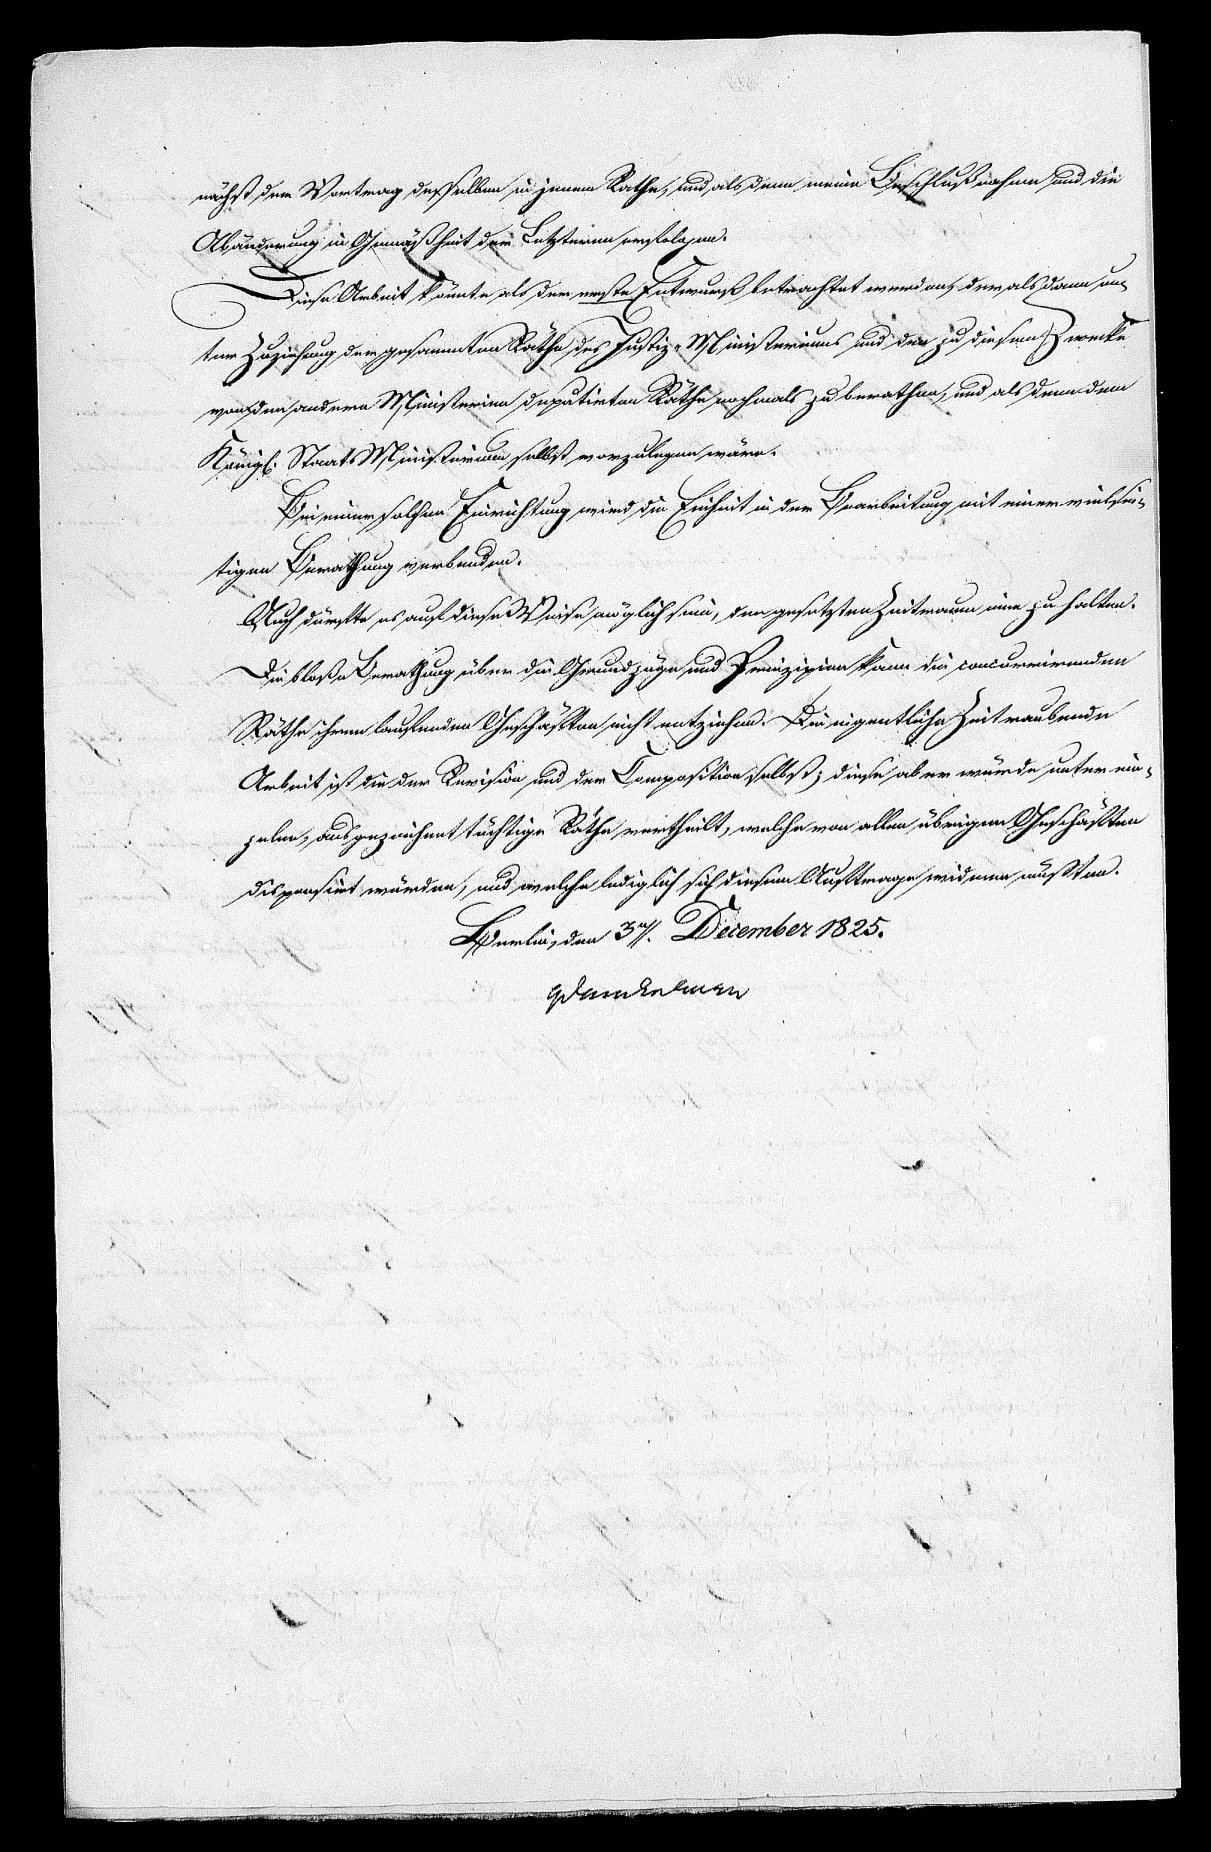 nächst der Vortrag desselben in jenem Rathe, und alsdann meine Beschlußnahme und die
Abänderung in Gemäßheit der Letzteren erfolgen.
Diese Arbeit könnte als der erste Entwurf betrachtet werden, der alsdann un-
ter Zuziehung der gesammten Räthe des Justiz-Ministeriums und der zu diesem Zwecke
von den andern Ministerien deputirten Räthe nochmals zu berathen, und alsdann dem
Königl. Staats Ministerium selbst vorzulegen wäre.
Bei einer solchen Einrichtung wird die Einheit in der Bearbeitung mit einer vielsei-
tigen Berathung verbunden.
Auch dürfte es auf diese Weise möglich sein, den gesetzten Zeitraum inne zu halten.
Die bloße Berathung über die Grundzüge und Prinzipien kann die concurrirenden
Räthe ihren laufenden Geschäften nicht entziehen. Die eigentliche Zeitraubende
Arbeit ist die der Revision und der Composition selbst; diese aber würde unter ein-
zelne, ausgezeichnet tüchtige Räthe vertheilt, welche von allen übrigen Geschäften
dispensirt würden, und welche lediglich sich diesem Auftrage widmen müßten.
Berlin, den 3n. December 1825.
Danckelman